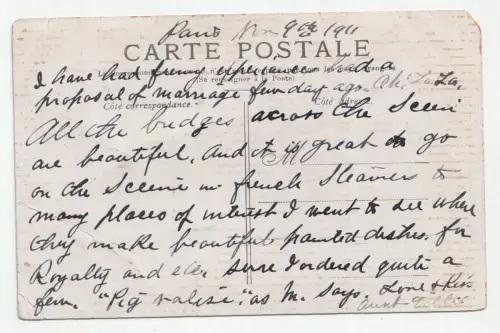 Paris Nov 9th 1911
CARTE POSTALE
I have had funny experience had a
(Se renseigner à la Poste)
proposal of marriage few day ago. Oh! La La,
Côté correspondance. Côté adresse
All the bridges across the Scein
are beautiful. And it is great to go
on the Sceine in french Steamer to
many places of interest I went to see where
they make beautiful painted dishes. for
Royalty and etc. sure I ordered quite a
few. "Pig valise". as M. says. Love & Kis
aunt